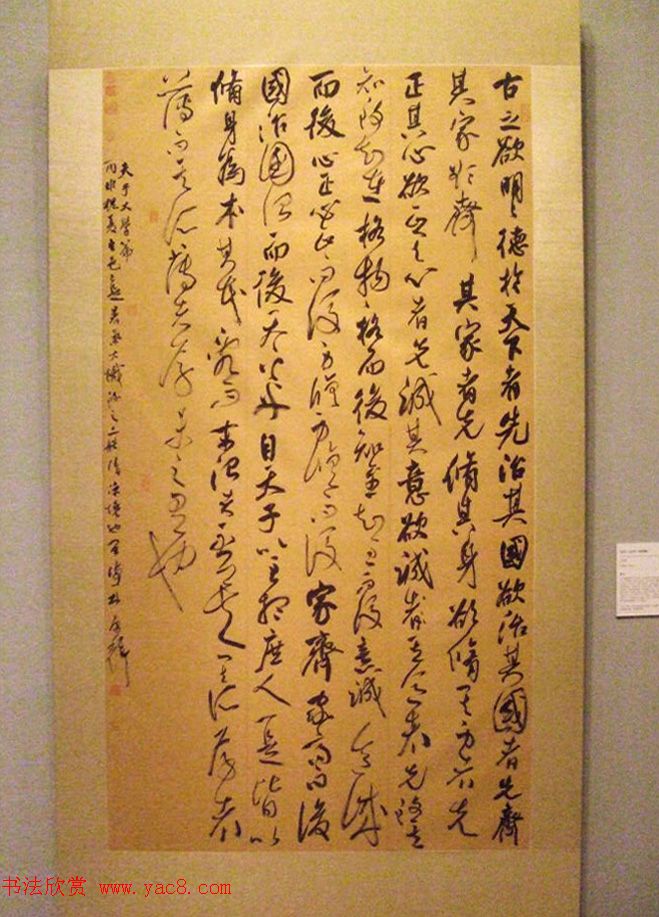 古之欲明〻德於天下者先治其國欲治其國者先齊
其家欲齊其家者先脩其身欲脩其身者先
正其心欲正其心者先誠其意欲誠其意者先致其
知致知在格物〻格而後知至知至而後意誠意誠
而後心正心正而後身脩身脩而後家齊家齊而後
國治國治而後天下平自天子以至於庶人壹是皆以
脩身為本其本亂而末治者否矣其所厚者
薄而其所薄者厚未之有也
夫子大學篇
书法欣赏 www.yac8.com